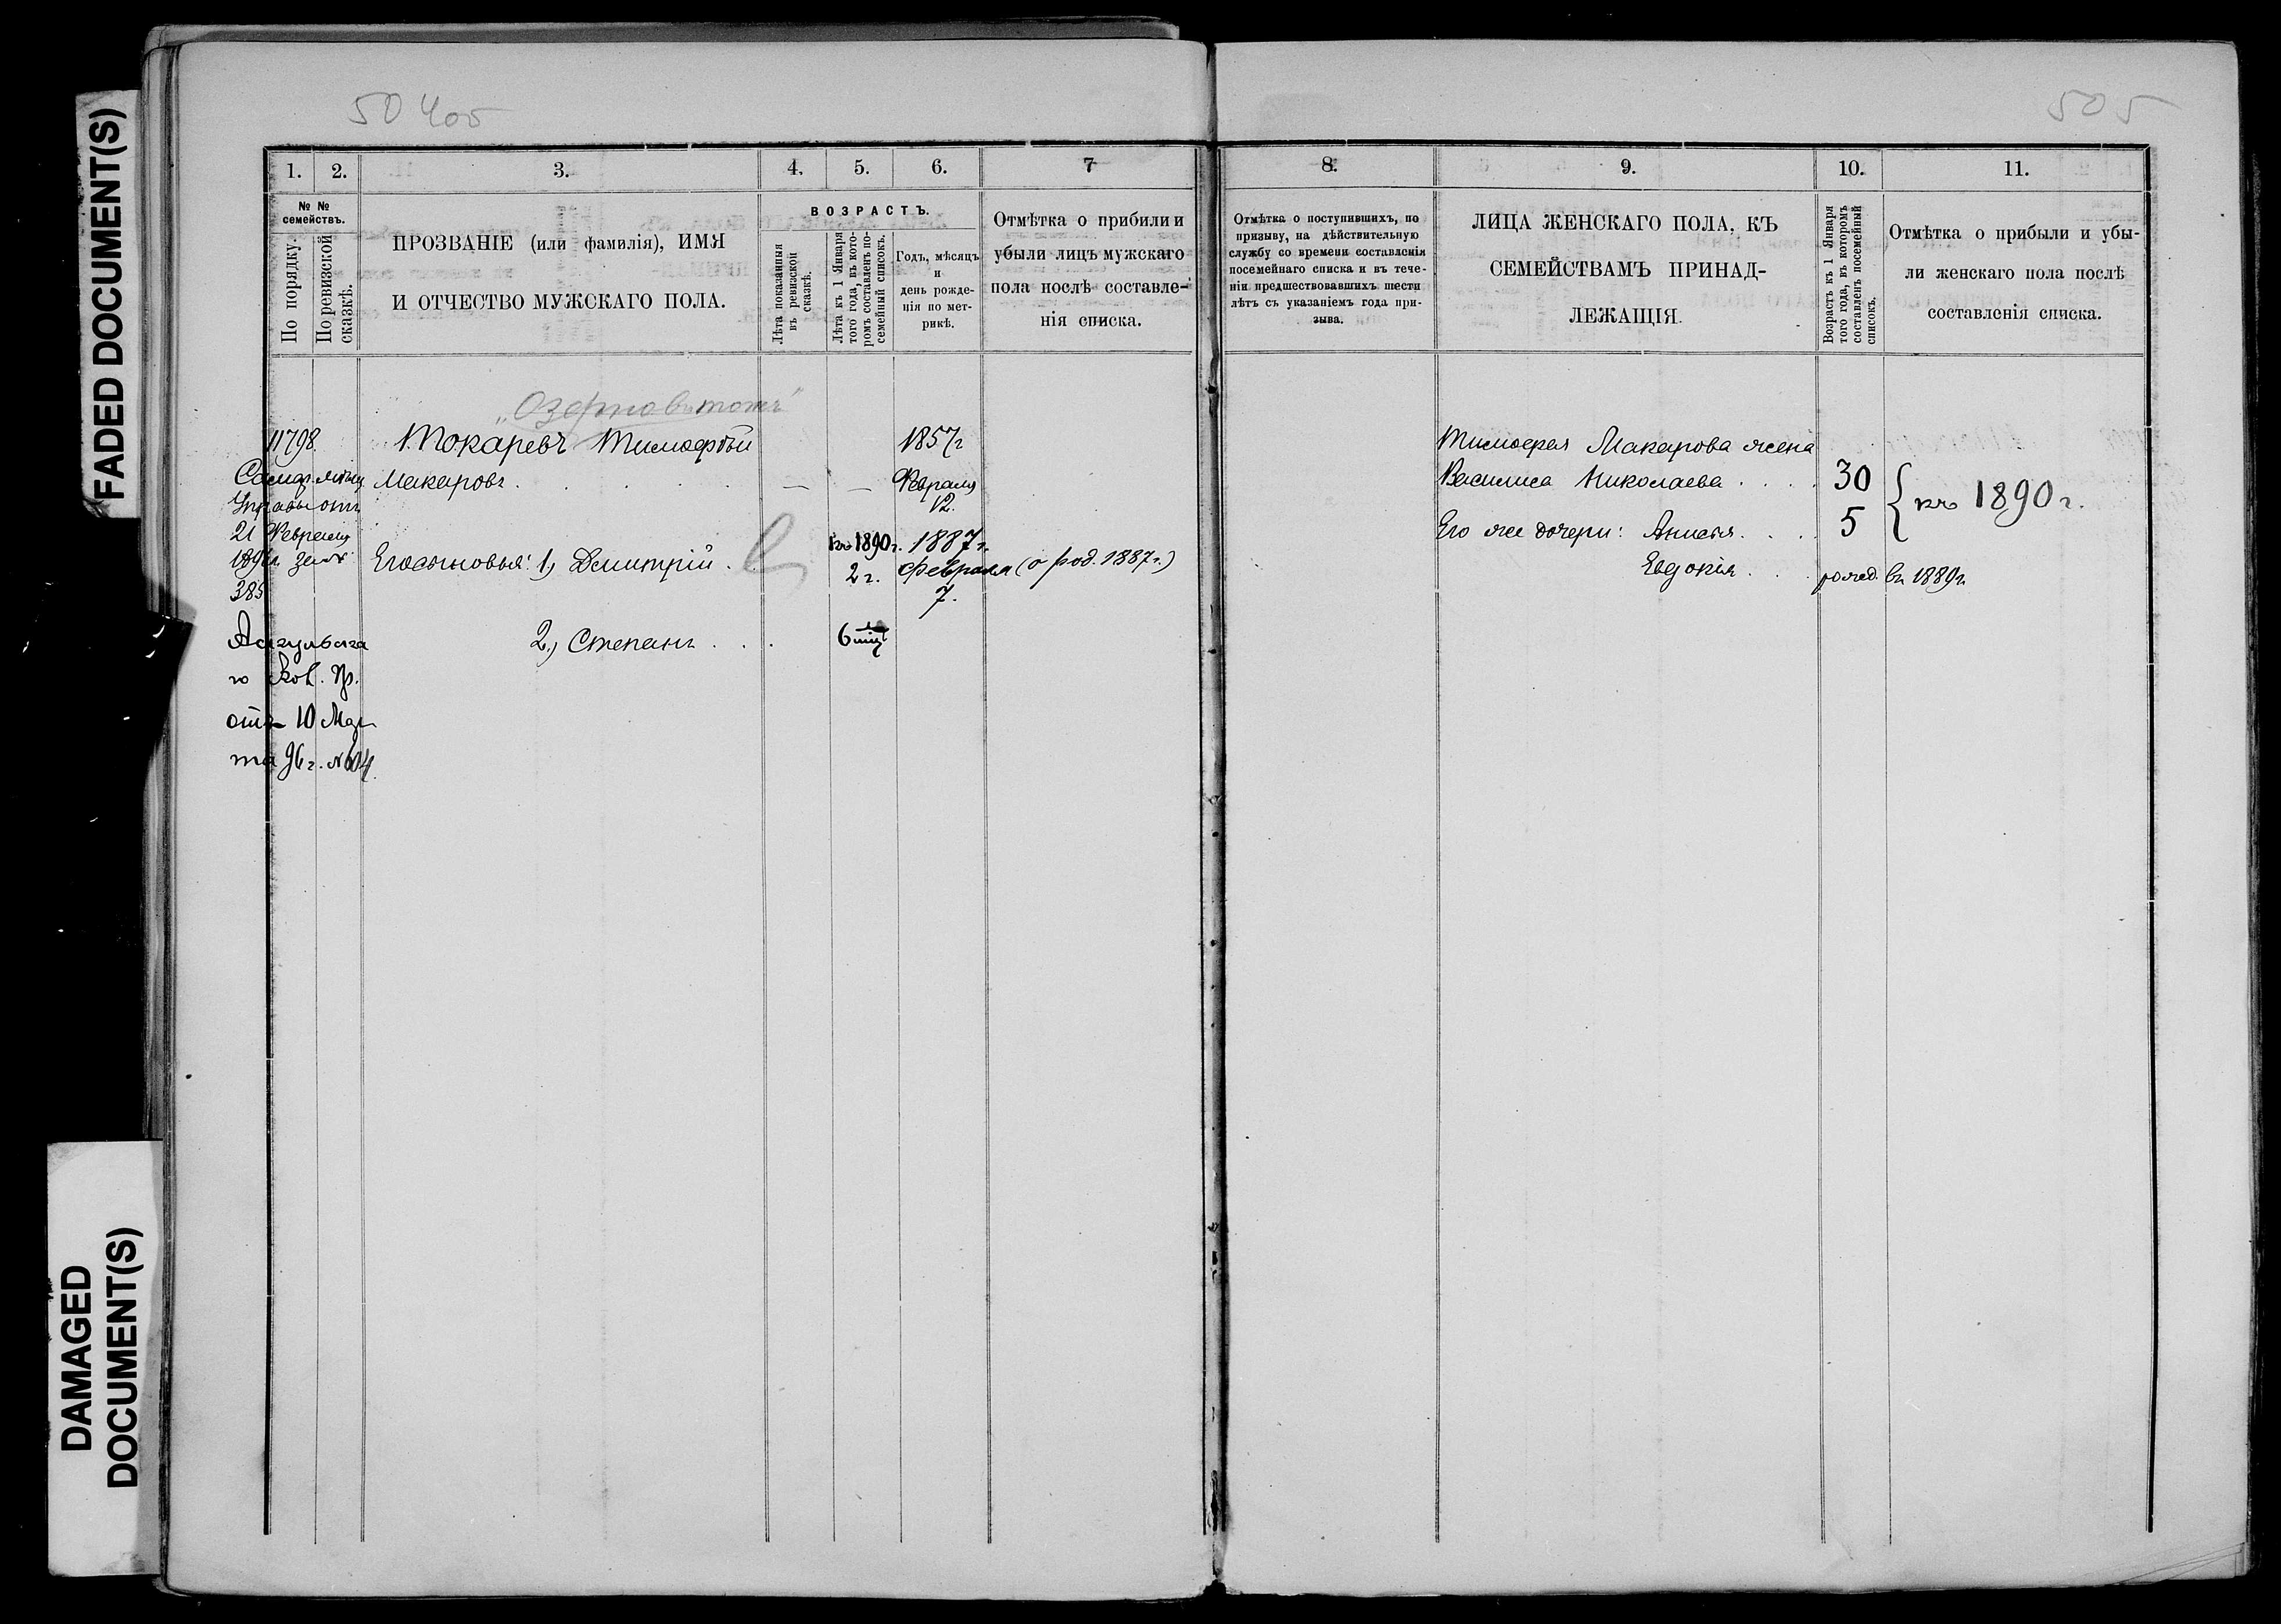 FADED DOCUMENT(S)
DAMAGED
DOCUMENT(S)
505
1.
2.
3.
4.
5.
6.
7
№ №
семействъ.
По порядку.
По ревизской
сказкѣ.
ПРОЗВАНІЕ (или фамилія), ИМЯ
И ОТЧЕСТВО МУЖСКАГО ПОЛА.
ВОЗРАСТЪ.
Лѣта показанныя
въ ревизской
сказкѣ.
Лѣта къ 1 Января
того года, въ кото-
ромъ составленъ по-
семейный списокъ.
Годъ, мѣсяцъ
и
день рожде-
нія по мет-
рикѣ.
Отмѣтка о прибили и
убыли лицъ мужскаго
пола послѣ составле-
нія списка.
11798.
Токаревъ Тимофѣй
1857г
Макаровъ . . . . .
— —
Февраля
12.
Управы отъ
21 Февраля
385
Его сыновья: 1, Дмитрій .
къ 1890г.
2 г.
1887г.
Февраля (о род. 1887г.)
7.
2,) Степанъ . . .
6 мѣс
отъ 10 Мар
та 96г. №604
8.
9.
10.
11.
Отмѣтка о поступившихъ, по
призыву, на дѣйствительную
службу со времени составленія
посемейнаго списка и въ тече-
ніи предшествовавшихъ шести
лѣтъ съ указаніемъ года при-
зыва.
ЛИЦА ЖЕНСКАГО ПОЛА, КЪ
СЕМЕЙСТВАМЪ ПРИНАД-
ЛЕЖАЩІЯ.
Возрастъ къ 1 Января
того года, въ которомъ
составленъ посемейный
списокъ.
Отмѣтка о прибыли и убы-
ли женскаго пола послѣ
составленія списка.
Тимофея Макарова жена
Василиса Николаева . . . . 30
къ 1890г.
Его же дочери: Анисья . . . 5
Евдокія . . . рожд. въ 1889г.